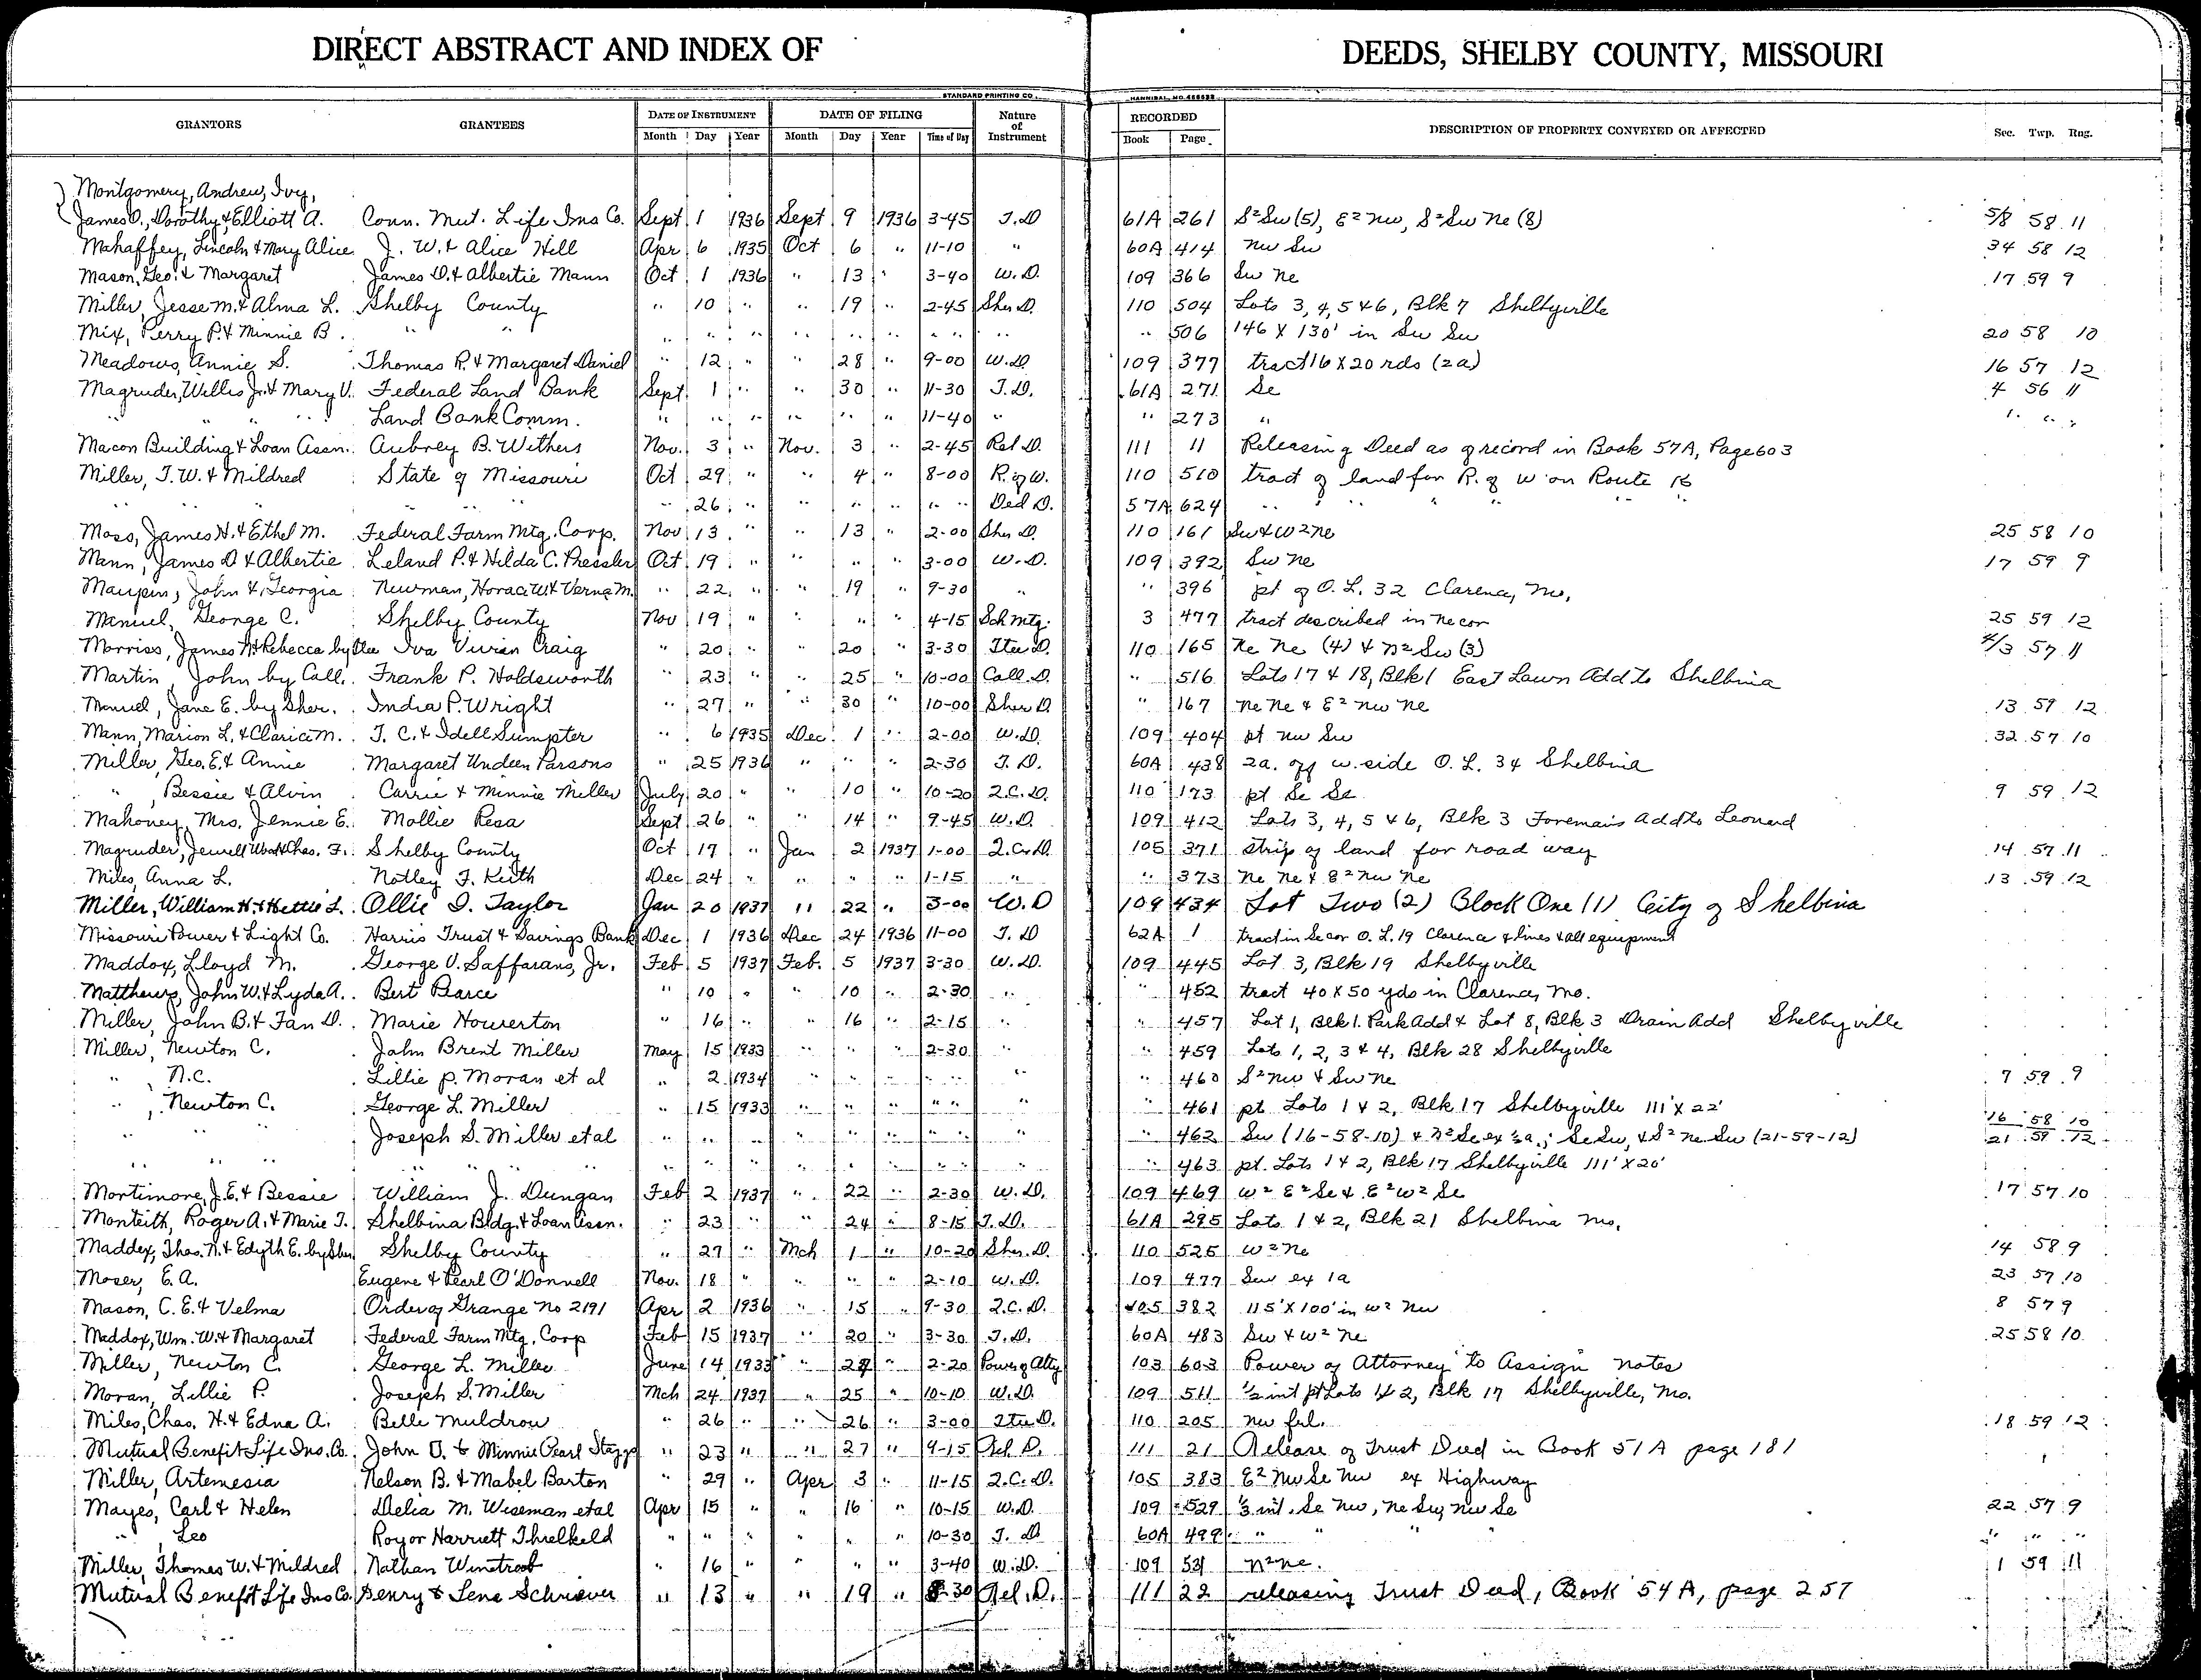 DIRECT ABSTRACT AND INDEX OF DEEDS, SHELBY COUNTY, MISSOURI
STANDARD PRINTING CO., HANNIBAL, MO.
GRANTORS GRANTEES DATE OF INSTRUMENT DATE OF FILING Nature of Instrument RECORDED DESCRIPTION OF PROPERTY CONVEYED OR AFFECTED Sec. Twp. Rng.
Month Day Year Month Day Year Time of Day Book Page
Montgomery, Andrew, Ivy,
James O., Dorothy & Elliott A. Conn. Mut. Life Ins Co. Sept 1 1936 Sept 9 1936 3-45 T.D 61A 261 S²Sw (5), E² nw, S²Sw Ne (8) 5/8 58 11
Mahaffey, Lincoln & Mary Alice J. W. & Alice Hill Apr 6 1935 Oct 6 " 11-10 " 60A 414 nw Sw 34 58 12
Mason, Geo. & Margaret James D. & Albertie Mann Oct 1 1936 " 13 " 3-40 W.D. 109 366 Sw ne 17 59 9
Miller, Jesse M. & Alma L. Shelby County " 10 " " 19 " 2-45 Sher D. 110 504 Lots 3, 4, 5 & 6, Blk 7 Shelbyville
Mix, Perry P. & Minnie B. " " " " " " " " " " " 506 146 X 130' in Sw Sw 20 58 10
Meadows, Annie S. Thomas R. & Margaret Daniel " 12 " " 28 " 9-00 W.D. 109 377 tract 16 X 20 rds (2a) 16 57 12
Magruder, Willis Jr. & Mary V. Federal Land Bank Sept 1 " " 30 " 11-30 T.D. 61A 271 Se 4 56 11
" " " Land Bank Comm. " " " " " " 11-40 " " 273 " " " "
Macon Building & Loan Assn. Aubrey B. Withers Nov. 3 " Nov. 3 " 2-45 Rel D. 111 11 Releasing Deed as of record in Book 57A, Page 603
Miller, T. W. & Mildred State of Missouri Oct 29 " " 4 " 8-00 R. of W. 110 510 tract of land for R. of W on Route 16
" " " " " 26 " " " " " " Ded D. 57A 624 " " " " "
Moss, James H. & Ethel M. Federal Farm Mtg. Corp. Nov 13 " " 13 " 2-00 Sher D. 110 161 Sw & W²ne 25 58 10
Mann, James D & Albertie Leland P. & Hilda C. Pressler Oct 19 " " " " 3-00 W.D. 109 392 Sw ne 17 59 9
Maupin, John & Georgia Newman, Horace W. & Verna M. " 22 " " 19 " 9-30 " " 396 pt of O. L. 32 Clarence, Mo.
Manuel, George C. Shelby County Nov 19 " " " " 4-15 Sch Mtg. 3 477 tract described in ne cor 25 59 12
Morriss, James H. & Rebecca by Iva Vivian Craig " 20 " " 20 " 3-30 Stee D. 110 165 Ne Ne (4) & n² Sw (3) 4/3 57 11
Martin, John by Coll. Frank P. Holdsworth " 23 " " 25 " 10-00 Coll. D. " 516 Lots 17 & 18, Blk 1 East Lawn Add to Shelbina
Manuel, Jane E. by Sher. India P. Wright " 27 " " 30 " 10-00 Sher D. " 167 ne ne & E² nw ne 13 59 12
Mann, Marion L. & Clarice M. T. C. & Idell Sumpter " 6 1935 Dec. 1 " 2-00 W.D. 109 404 pt nw Sw 32 57 10
Miller, Geo. E. & Annie Margaret Undeen Parsons " 25 1936 " " " 2-30 T. D. 60A 438 2a. off w. side O. L. 34 Shelbina
" , Bessie & Alvin Carrie & Minnie Miller July 20 " " 10 " 10-20 Q.C.D. 110 173 pt Se Se 9 59 12
Mahoney, Mrs. Jennie E. Mollie Resa Sept 26 " " 14 " 9-45 W.D. 109 412 Lots 3, 4, 5 & 6, Blk 3 Foreman's Add to Leonard
Magruder, Jewell & Chas. F. Shelby County Oct 17 " Jan 2 1937 1-00 Q.C.D. 105 371 strip of land for road way 14 57 11
Miles, Anna L. Notley F. Keith Dec 24 " " " " 1-15 " " 373 ne ne & E² nw ne 13 59 12
Miller, William H. & Hettie L. Ollie D. Taylor Jan 20 1937 " 22 " 3-00 W.D 109 434 Lot Two (2) Block One (1) City of Shelbina
Missouri Power & Light Co. Harris Trust & Savings Bank Dec 1 1936 Dec 24 1936 11-00 T. D 62A 1 tract in Se cor O. L. 19 Clarence & lines & all equipment
Maddox, Lloyd M. George V. Saffarans, Jr. Feb 5 1937 Feb. 5 1937 3-30 W.D. 109 445 Lot 3, Blk 19 Shelbyville
Matthews, John W. & Lyda A. Bert Pearce " 10 " " 10 " 2-30 " " 452 tract 40 X 50 yds in Clarence, Mo.
Miller, John B. & Fan D. Marie Howerton " 16 " " 16 " 2-15 " " 457 Lot 1, Blk 1. Park Add & Lot 8, Blk 3 Drain Add Shelbyville
Miller, Newton C. John Brent Miller May 15 1933 " " " 2-30 " " 459 Lots 1, 2, 3 & 4, Blk 28 Shelbyville
" , N.C. Lillie P. Moran et al " 2 1934 " " " " " " 460 S² nw & Sw ne 7 59 9
" , Newton C. George L. Miller " 15 1933 " " " " " " 461 pt Lots 1 & 2, Blk 17 Shelbyville 111' X 22'
" " Joseph S. Miller et al " " " " " " " " " 462 Sw (16-58-10) & n² Se ex ½a.; Se Sw, & S² ne Sw (21-59-12) 16 58 10 / 21 59 12
" " " " " " " " " " " " " 463 pt. Lots 1 & 2, Blk 17 Shelbyville 111' X 20'
Mortimore, J. E. & Bessie William J. Dungan Feb 2 1937 " 22 " 2-30 W.D. 109 469 W² E² Se & E² W² Se 17 57 10
Monteith, Roger A. & Marie T. Shelbina Bldg. & Loan Assn. " 23 " " 24 " 8-15 T.D. 61A 295 Lots 1 & 2, Blk 21 Shelbina Mo.
Maddex, Thos. N. & Edyth E. by Sher Shelby County " 27 " Mch 1 " 10-20 Sher. D. 110 525 W² ne 14 58 9
Moser, E. A. Eugene & Pearl O'Donnell Nov. 18 " " " " 2-10 W.D. 109 477 Sw ex 1a 23 57 10
Mason, C. E. & Velma Order of Grange No 2191 Apr 2 1936 " 15 " 9-30 Q.C.D. 105 382 115' X 100' in W² nw 8 57 9
Maddox, Wm. W. & Margaret Federal Farm Mtg. Corp Feb 15 1937 " 20 " 3-30 T.D. 60A 483 Sw & W² ne 25 58 10
Miller, Newton C. George L. Miller June 14 1933 " 24 " 2-20 Power of Atty 103 603 Power of Attorney to Assign notes
Moran, Lillie P. Joseph S. Miller Mch 24 1937 " 25 " 10-10 W.D. 109 511 ½ int pt Lots 1 & 2, Blk 17 Shelbyville, Mo.
Miles, Chas. H. & Edna A. Belle Muldrow " 26 " " 26 " 3-00 Stee D. 110 205 nw frl. 18 59 12
Mutual Benefit Life Ins. Co. John O. & Minnie Pearl Staggs " 23 " " 27 " 9-15 Rel D. 111 21 Release of Trust Deed in Book 51A page 181
Miller, Artemesia Nelson B. & Mabel Barton " 29 " Apr 3 " 11-15 Q.C.D. 105 383 E² nw Se nw ex Highway
Mayes, Carl & Helen Delia M. Wiseman et al Apr 15 " " 16 " 10-15 W.D. 109 529 ⅓ int. Se nw, ne Sw, nw Se 22 57 9
" , Leo Roy or Harriett Threlkeld " " " " " " 10-30 T. D 60A 499 " " " " " "
Miller, Thomas W. & Mildred Nathan Wintroob " 16 " " " " 3-40 W.D. 109 531 n² ne. 1 59 11
Mutual Benefit Life Ins Co. Henry & Lena Schriever " 13 " " 19 " 8-30 Rel. D. 111 22 releasing Trust Deed, Book 54A, page 257